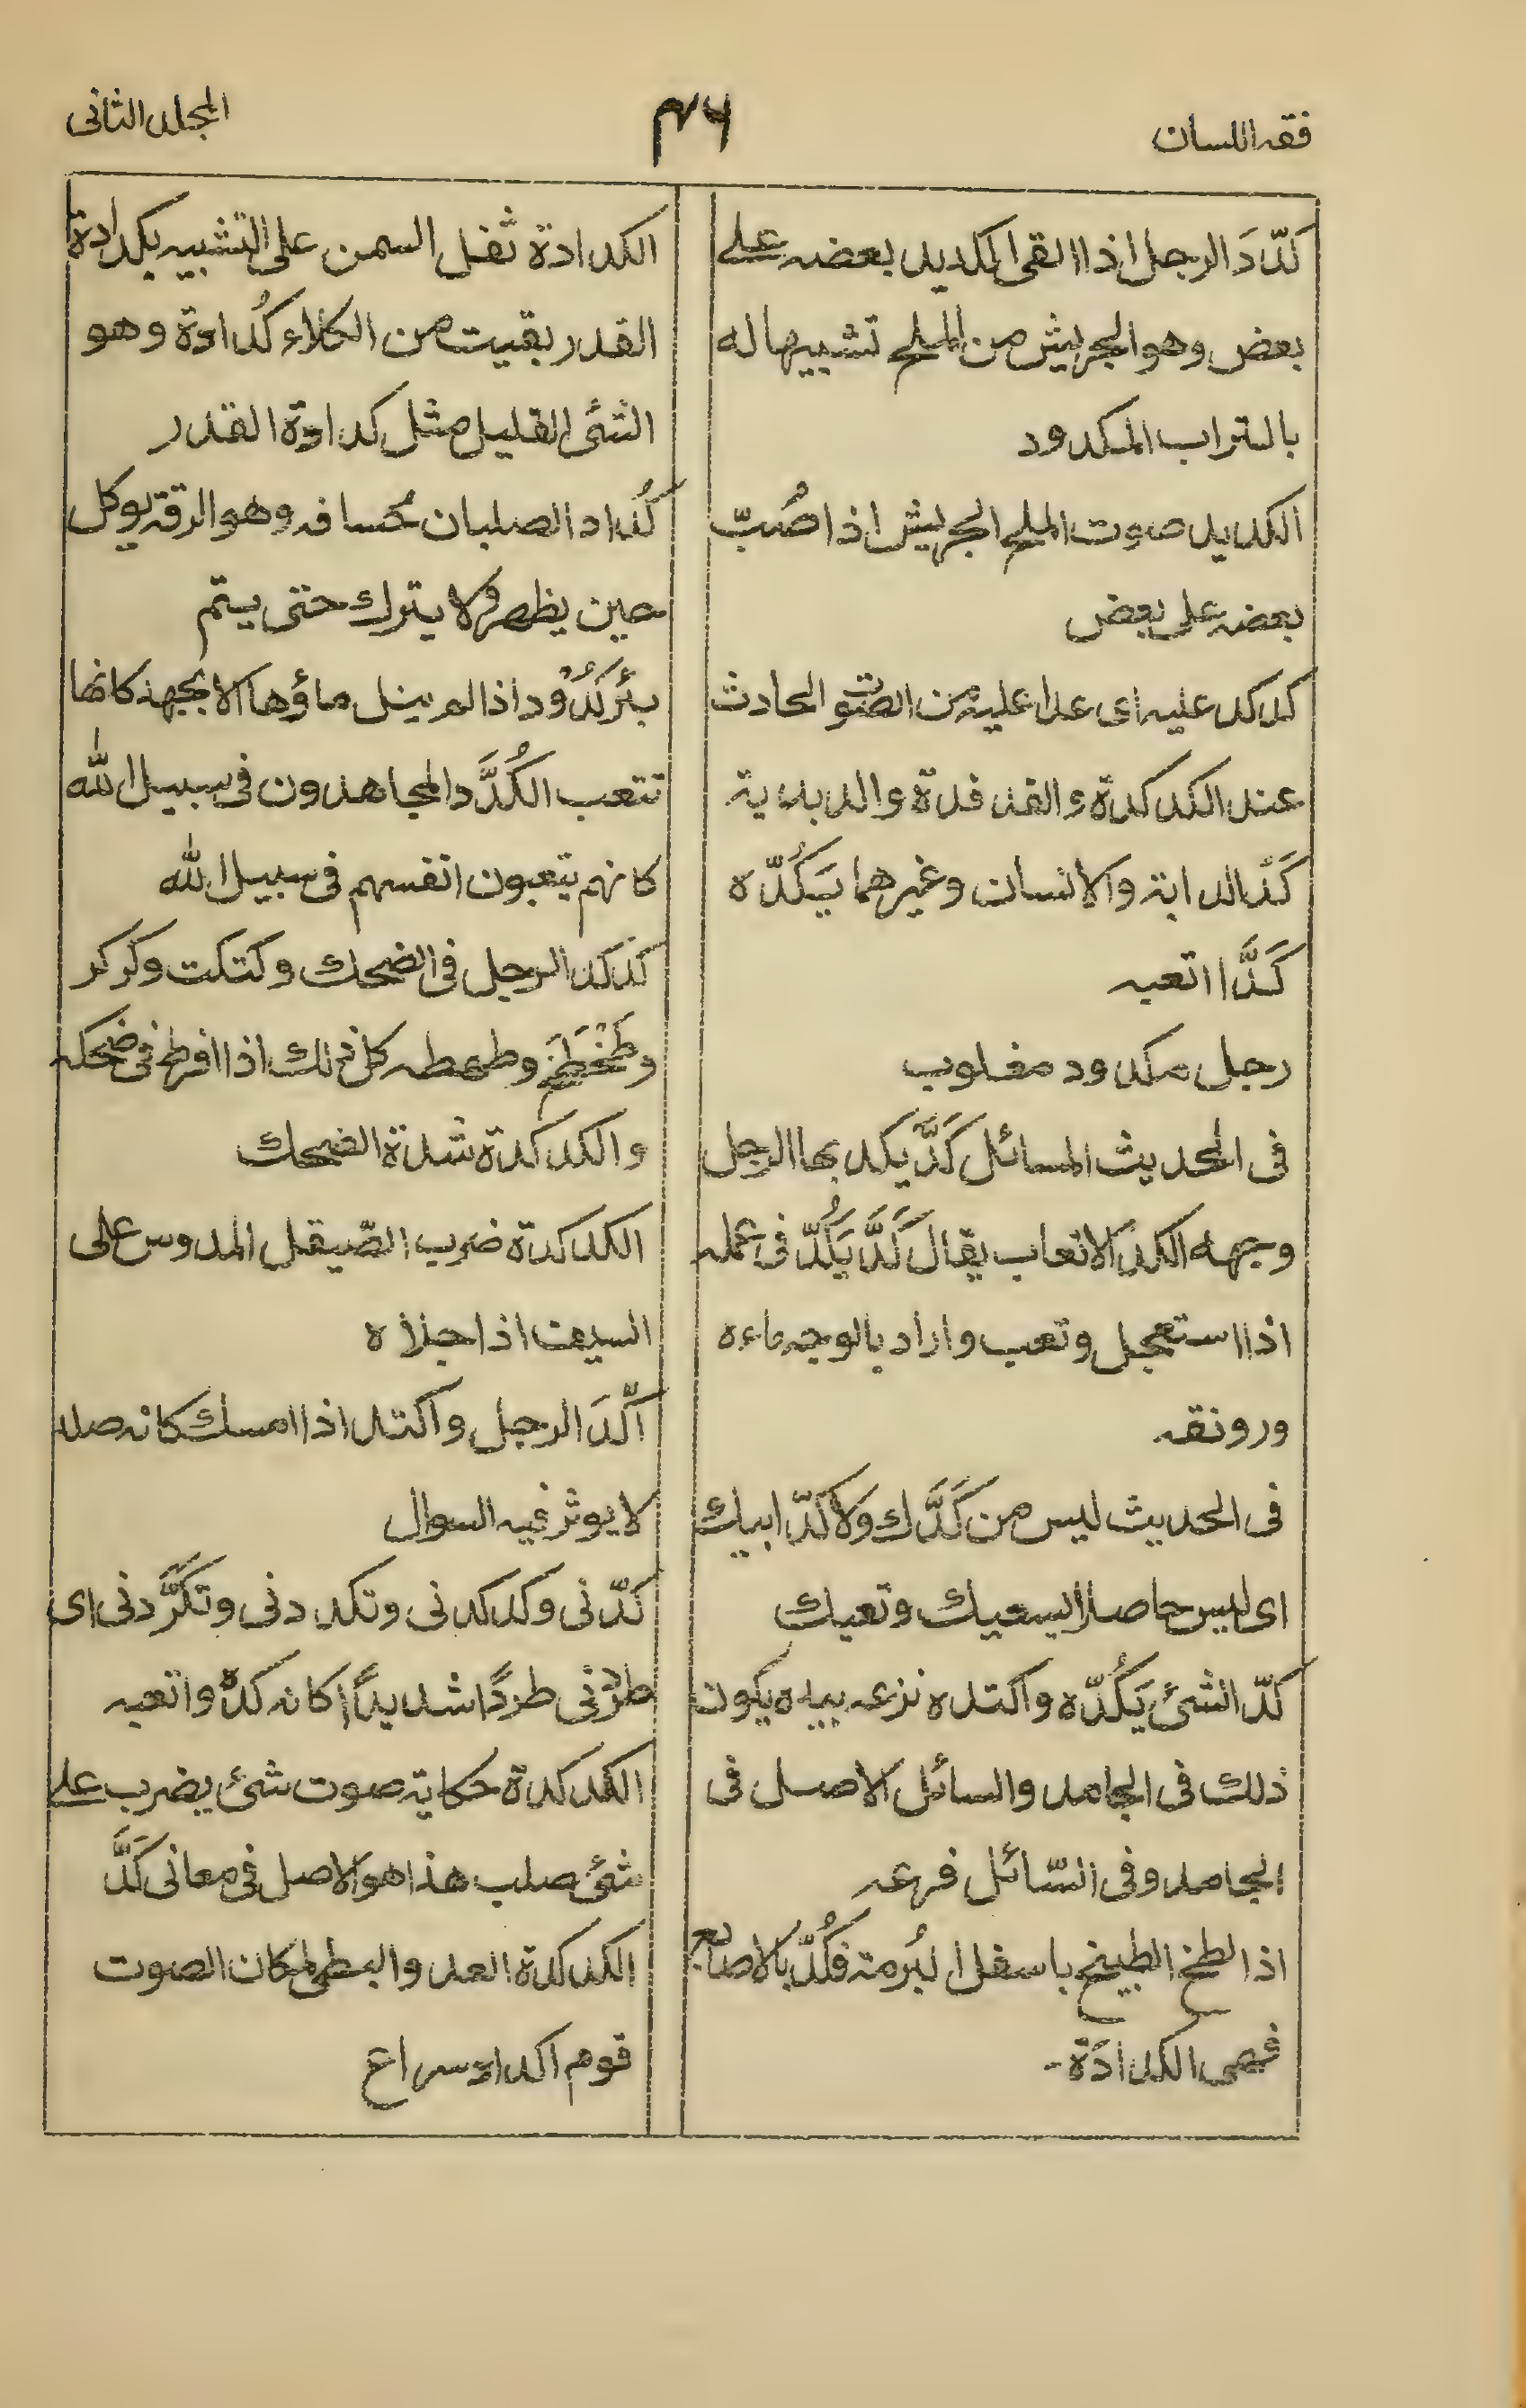 فقه اللسان
٣٤٦
المجلد الثانی
كَدّدَ الرجل اذا القی الكدید بعضه علے
بعض وهو الجریش من الملح تشبیها له
بالتراب المكدود
الكدید صوت الملح الجریش اذا صُبّ
بعضه علی بعض
كدكد علیه ای عدا علیه من الصوت الحادث
عند الكدكدة والفدفدة والدبدبة
كَدّ الدابة والانسان وغیرهما یَكُدّه
كَدًّا اتعبه
رجل مكدود مغلوب
فی الحدیث المسائل كَدٌّ یكد بها الرجل
وجهه الكد الاتعاب یقال كَدَّ یَكُدّ فی عمله
اذا استعجل وتعب واراد بالوجه ماءه
ورونقه
فی الحدیث لیس من كَدِّك ولا كَدّ ابیك
ای لیس حاصلا لسعیك وتعبك
كدّ الشئ یَكُدّه واكتده نزعه بیده یكون
ذلك فی الجامد والسائل الاصل فی
الجامد وفی السّائل فرعه
اذا لطخ الطبیخ باسفل البُرمة فكُدّ بالاصابع
فهی الكدادَة -
الكدادة ثفل السمن علی التشبیه بكدادة
القدر بقیت من الكلاء كُدادة وهو
الشئ القلیل مثل كدادة القدر
كُداد الصلبان حُسافه وهو الرقة یوكل
حین یظهر ولا یترك حتی یتم
بئر كَدُوْد اذا لم ینل ماؤها الا بجهد كانها
تتعب الكُدَّد المجاهدون فی سبیل الله
كانهم یتعبون انفسهم فی سبیل الله
كدكد الرجل فی الضحك وكتكت وكركر
وطَخْطَخَ وطهطه كل ذلك اذا افرط فی ضحكه
والكدكدة شدة الضحك
الكدكدة ضرب الصّیقل المدوس علی
السیف اذا جلاه
اَكَّدَ الرجل واكتد اذا امسك كانه صلد
لا یوثر فیه السوال
كدّنی وكدكدنی وتكددنی وتكرَّدنی ای
طردنی طردًا شدیدًا كانه كدّه واتعبه
الكدكدة حكایة صوت شئ یضرب علے
شئ صلب هذا هو الاصل فی معانی كَدَّ
الكدكدة العدو البطی لمكان الصوت
قوم اكداد سراع